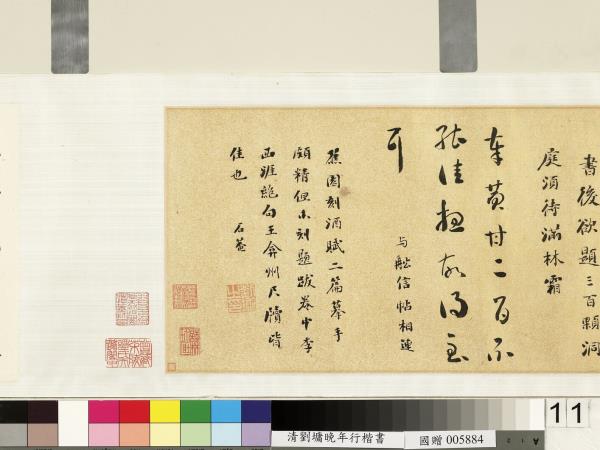 書後欲題三百顆洞
庭須待滿林霜
奉黃甘二百不
能佳想故得至
耳
信帖相連
蕉園刻酒賦二篇摹手
頗精但未刻題跋卷中李
西涯絶句王弇州尺牘皆
佳也 石菴
清劉墉晚年行楷書
國贈 005884
11